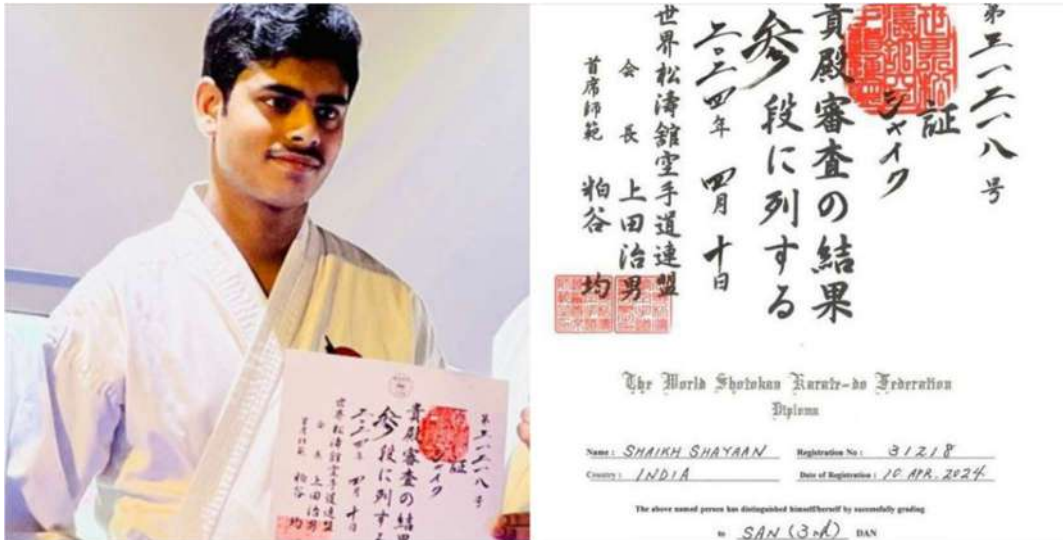 第三一二一八号
証
シャイク
貴殿審査の結果
参段に列する
二〇二四年 四月 十日
世界松濤館空手道連盟
会長 上田治男
首席師範 粕谷 均
The World Shotokan Karate-do Federation
Diploma
Name : SHAIKH SHAYAAN Registration No : 31218
Country : INDIA Date of Registration : 10 APR. 2024
The above named person has distinguished himself/herself by successfully grading
to SAN (3rd) DAN
第三一二一八号
証
シャイク
貴殿審査の結果
参段に列する
二〇二四年 四月 十日
世界松濤館空手道連盟
会長 上田治男
首席師範 粕谷 均